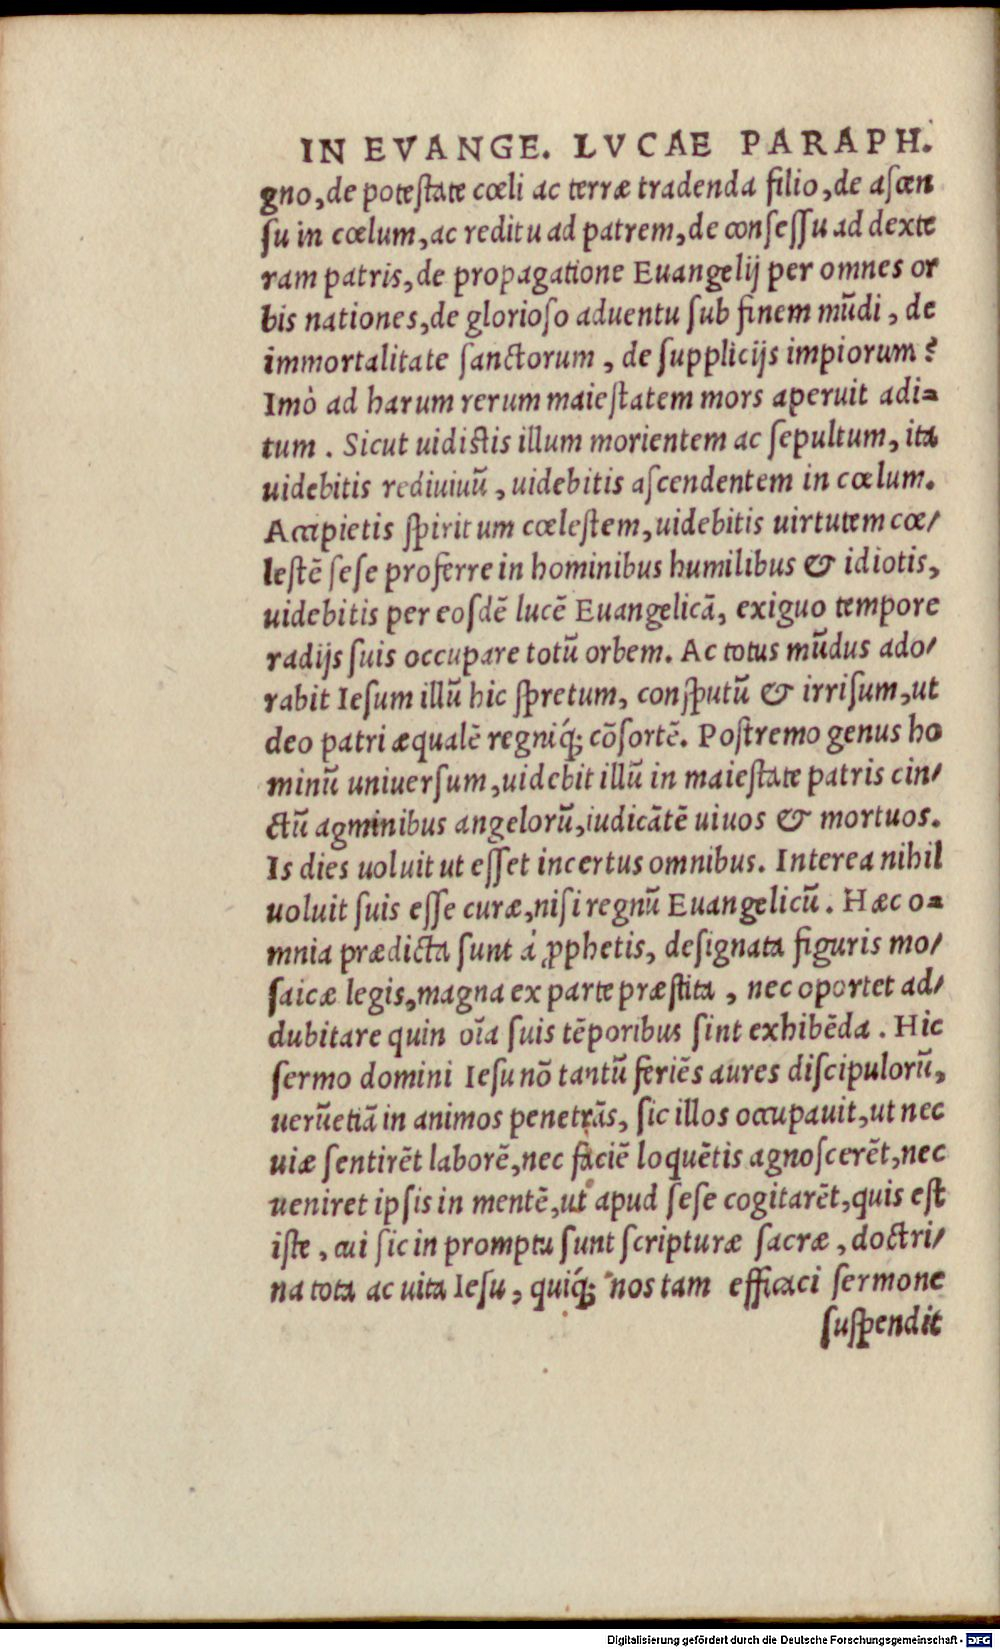 IN EVANGE. LVCAE PARAPH.
gno, de poteſtate cœli ac terræ tradenda filio, de aſcen
ſu in cœlum, ac reditu ad patrem, de conſeſſu ad dexte
ram patris, de propagatione Euangelij per omnes or
bis nationes, de glorioſo aduentu ſub finem mũdi, de
immortalitate ſanctorum, de ſupplicijs impiorum?
Imò ad harum rerum maieſtatem mors aperuit adi=
tum. Sicut uidiſtis illum morientem ac ſepultum, ita
uidebitis rediuiuũ, uidebitis aſcendentem in cœlum.
Accipietis ſpiritum cœleſtem, uidebitis uirtutem cœ/
leſtẽ ſeſe proferre in hominibus humilibus & idiotis,
uidebitis per eoſdẽ lucẽ Euangelicã, exiguo tempore
radijs ſuis occupare totũ orbem. Ac totus mũdus ado/
rabit Ieſum illũ hic ſpretum, conſputũ & irriſum, ut
deo patri æqualẽ regniq́; cõſortẽ. Poſtremo genus ho
minũ uniuerſum, uidebit illũ in maieſtate patris cin/
ctũ agminibus angelorũ, iudicãtẽ uiuos & mortuos.
Is dies uoluit ut eſſet incertus omnibus. Interea nihil
uoluit ſuis eſſe curæ, niſi regnũ Euangelicũ. Hæc o=
mnia prædicta ſunt á ꝓphetis, deſignata figuris mo/
ſaicæ legis, magna ex parte præſtita, nec oportet ad/
dubitare quin oĩa ſuis tẽporibus ſint exhibẽda. Hic
ſermo domini Ieſu nõ tantũ feriẽs aures diſcipulorũ,
uerũetiã in animos penetrãs, ſic illos occupauit, ut nec
uiæ ſentirẽt laborẽ, nec faciẽ loquẽtis agnoſcerẽt, nec
ueniret ipſis in mentẽ, ut apud ſeſe cogitarẽt, quis eſt
iſte, cui ſic in promptu ſunt ſcripturæ ſacræ, doctri/
na tota ac uita Ieſu, quiq́; nos tam efficaci ſermone
ſuſpendit
Digitalisierung gefördert durch die Deutsche Forschungsgemeinschaft - DFG